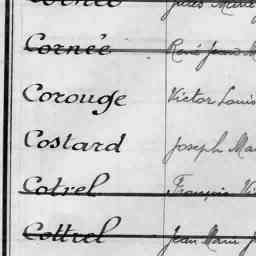 Cornée René Jean M
Corouge Victor Louis
Costard Joseph Mar
Cotrel François Vi
Cottrel Jean Marie J